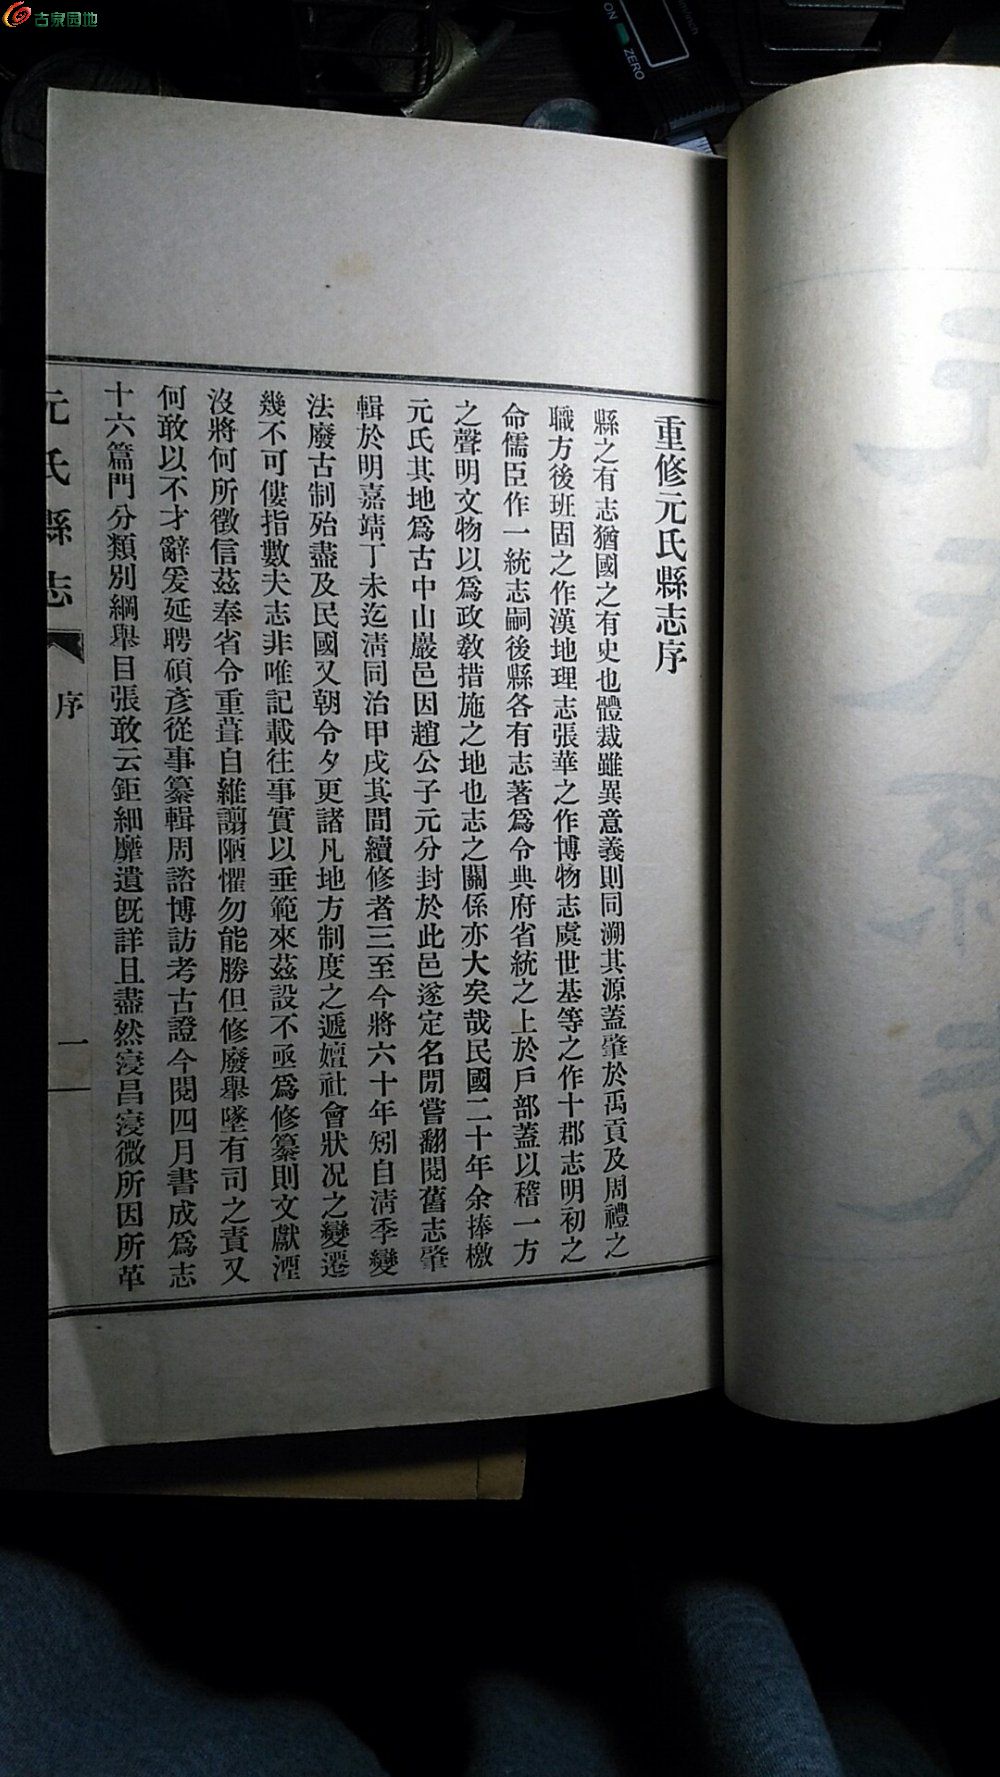 古泉园地
ON
ZERO
mm/inch
重修元氏縣志序
縣之有志猶國之有史也體裁雖異意義則同溯其源蓋肇於禹貢及周禮之
職方後班固之作漢地理志張華之作博物志虞世基等之作十郡志明初之
命儒臣作一統志嗣後縣各有志著爲令典府省統之上於戶部蓋以稽一方
之聲明文物以爲政教措施之地也志之關係亦大矣哉民國二十年余捧檄
元氏其地爲古中山嚴邑因趙公子元分封於此邑遂定名閒嘗翻閱舊志肇
輯於明嘉靖丁未迄淸同治甲戌其間續修者三至今將六十年矧自淸季變
法廢古制殆盡及民國又朝令夕更諸凡地方制度之遞嬗社會狀况之變遷
幾不可僂指數夫志非唯記載往事實以垂範來茲設不亟爲修纂則文獻湮
沒將何所徵信茲奉省令重葺自維謭陋懼勿能勝但修廢舉墜有司之責又
何敢以不才辭爰延聘碩彥從事纂輯周諮博訪考古證今閱四月書成爲志
十六篇門分類別綱舉目張敢云鉅細靡遺旣詳且盡然寖昌寖微所因所革
元氏縣志
序
一